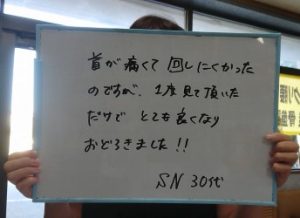 首が痛くて回しにくかった
のですが、1度見て頂いた
だけでとても良くなり
おどろきました!!
SN 30代